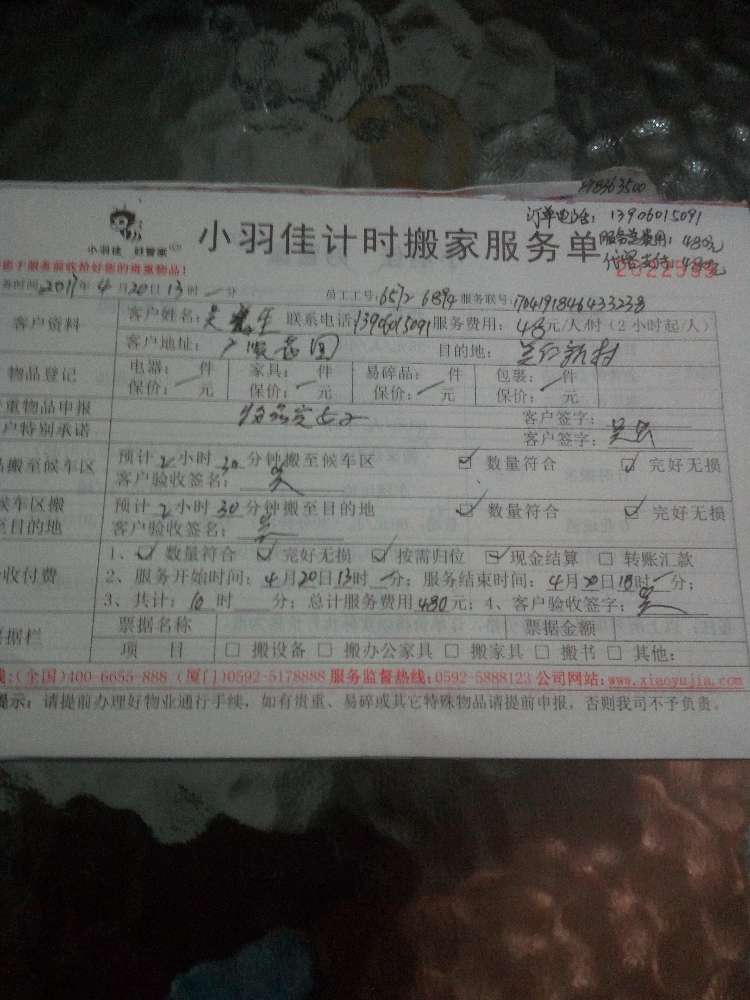 订单电话：13906015091
小羽佳 好管家
小羽佳计时搬家服务单
服务总费用：480元
员工工号：6572 6894 服务联号：1704191846433238
客户资料
客户姓名：吴 生 联系电话：13906015091 服务费用：48元/人/时（2小时起/人）
客户地址： 目的地： 新村
物品登记
电器： 件 家具： 件 易碎品： 件 包裹： 件
保价： 元 保价： 元 保价： 元 保价： 元
重物品申报
客户签字：
户特别承诺
客户签字：吴
品搬至候车区
预计2小时30分钟搬至候车区 ☑ 数量符合 ☑ 完好无损
客户验收签名：吴
候车区搬
至目的地
预计2小时30分钟搬至目的地 ☑ 数量符合 ☑ 完好无损
客户验收签名：吴
收付费
1、☑ 数量符合 ☑ 完好无损 ☑ 按需归位 ☑ 现金结算 □ 转账汇款
2、服务开始时间：4月20日13时 分；服务结束时间：4月20日18时 分；
3、共计：10时 分；总计服务费用480元；4、客户验收签字：吴
票据栏
票据名称 票据金额
项 目 □ 搬设备 □ 搬办公家具 □ 搬家具 □ 搬书 □ 其他：
线：(全国)400-6655-888 (厦门)0592-5178888 服务监督热线：0592-5888123 公司网站：www.xiaoyujia.com
提示：请提前办理好物业通行手续，如有贵重、易碎或其它特殊物品请提前申报，否则我司不予负责。